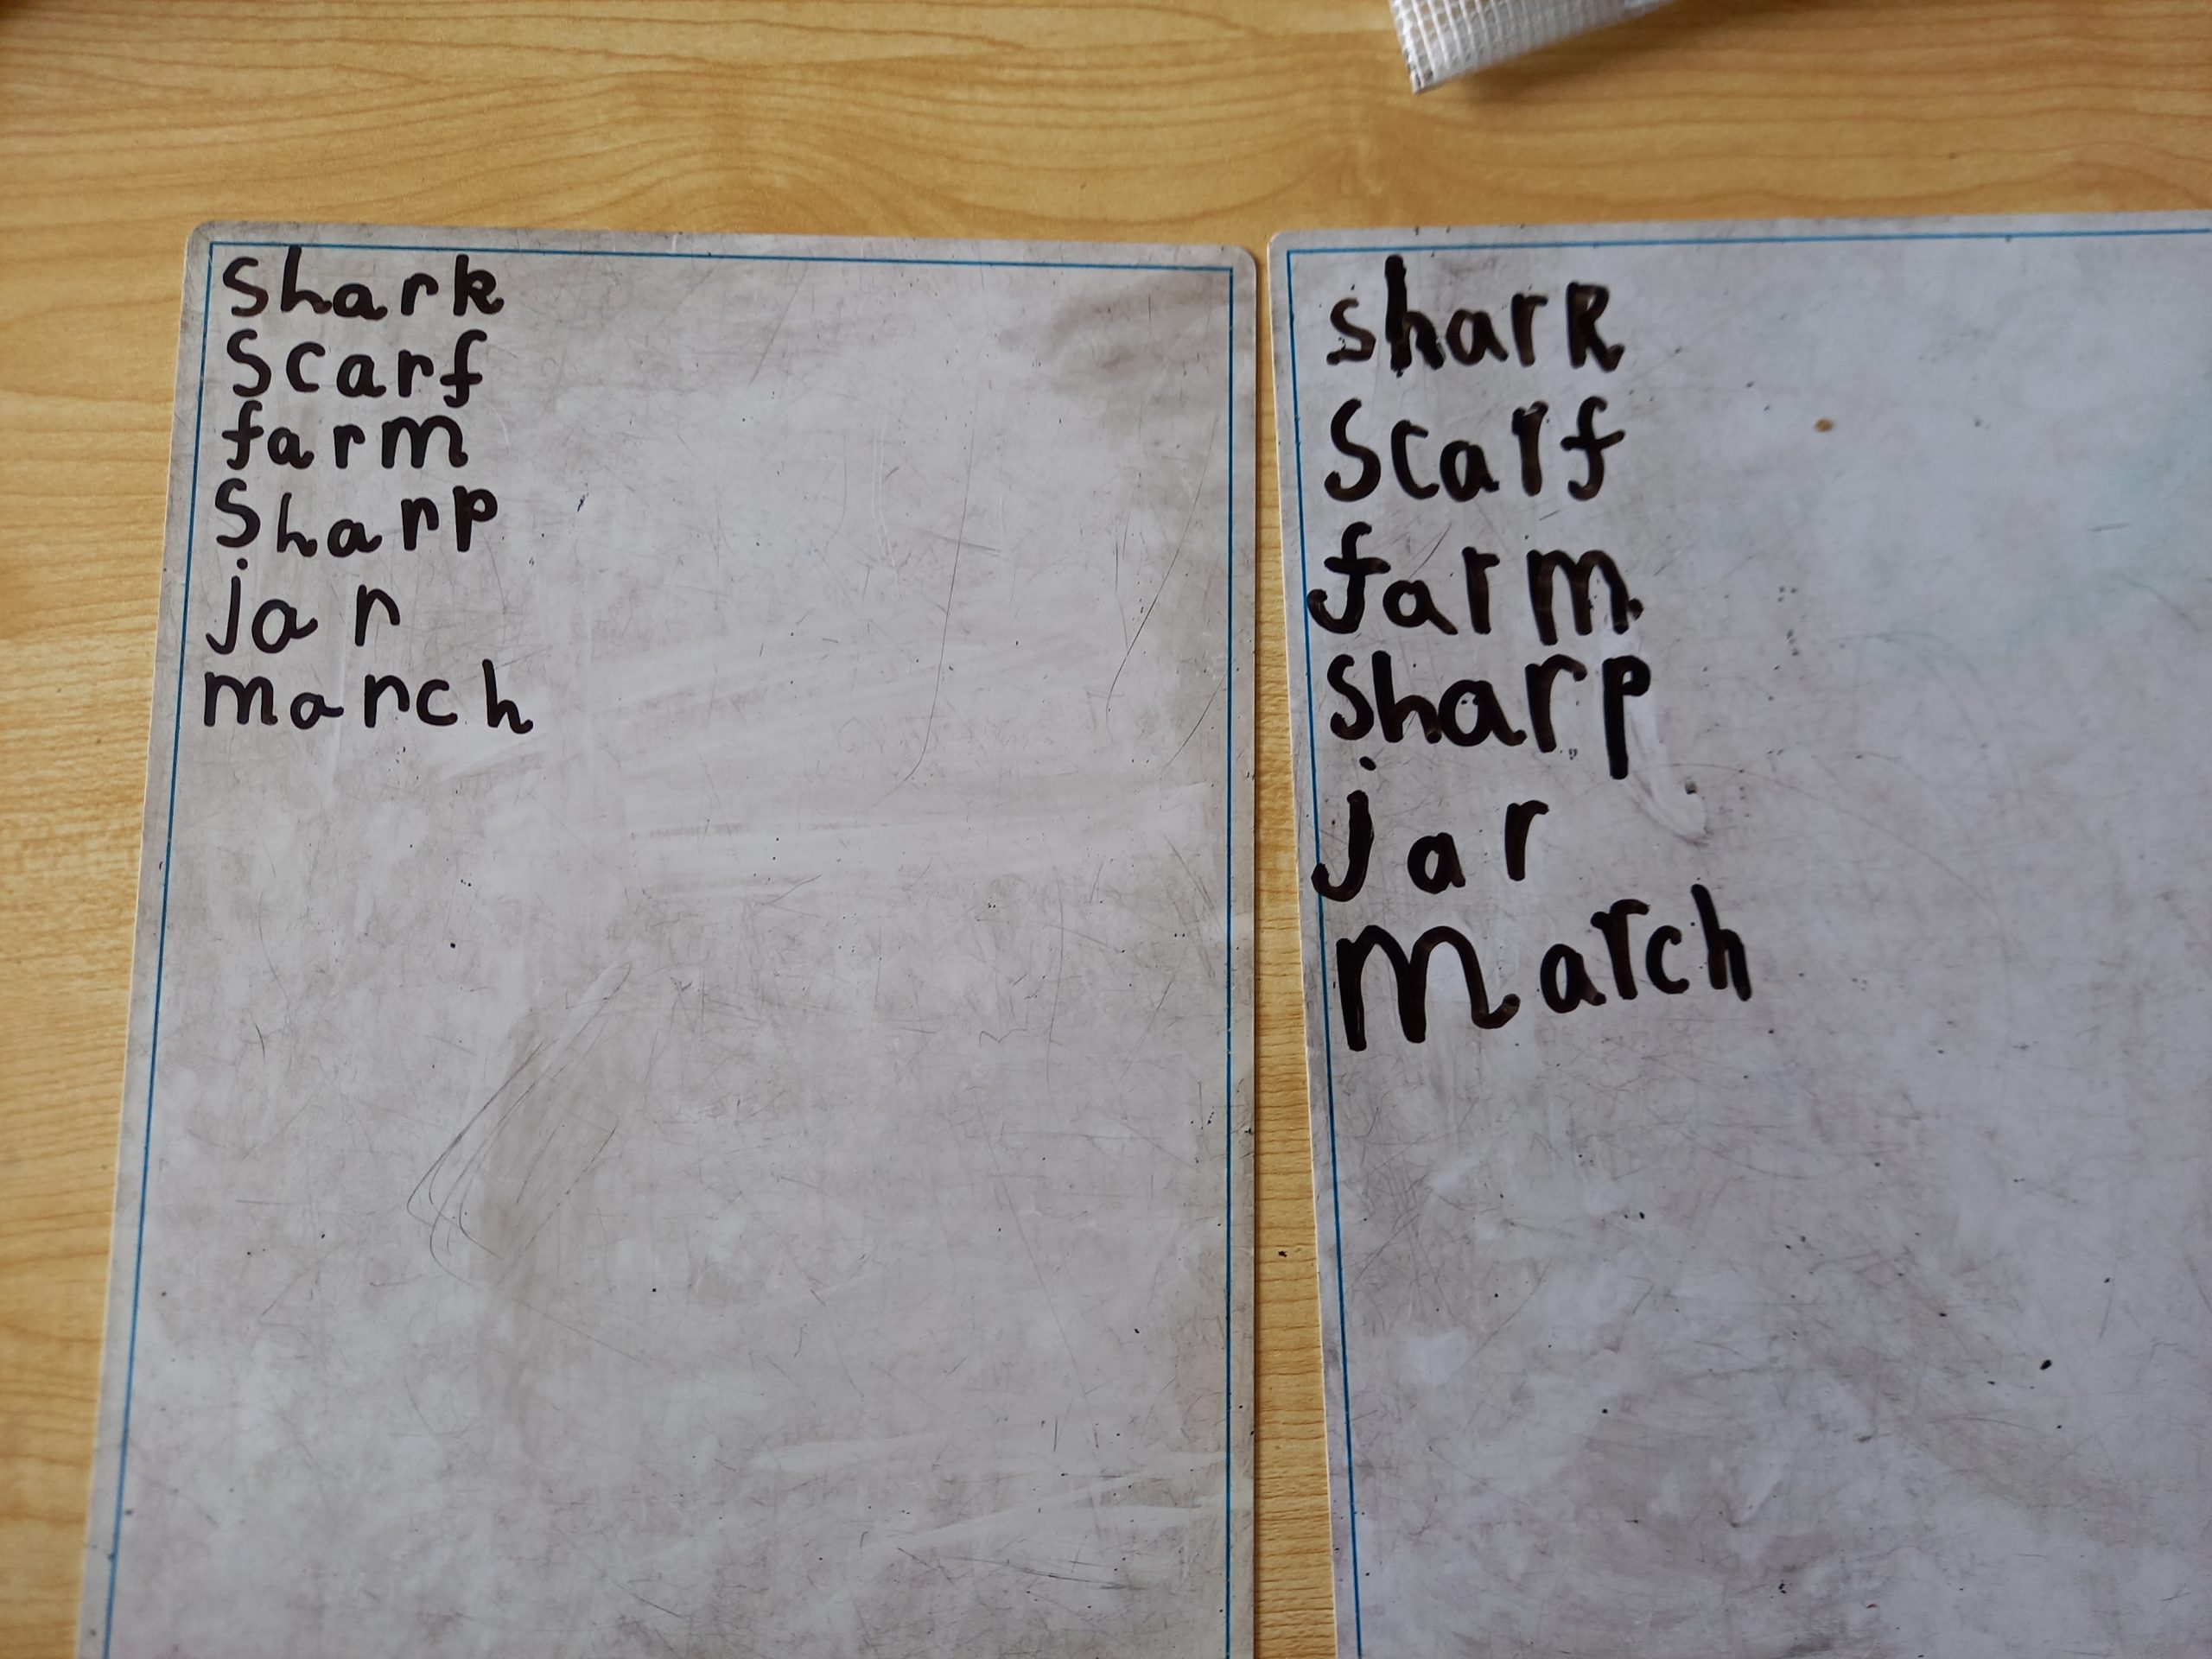 shark
scarf
farm
sharp
jar
march
shark
scarf
farm
sharp
jar
march